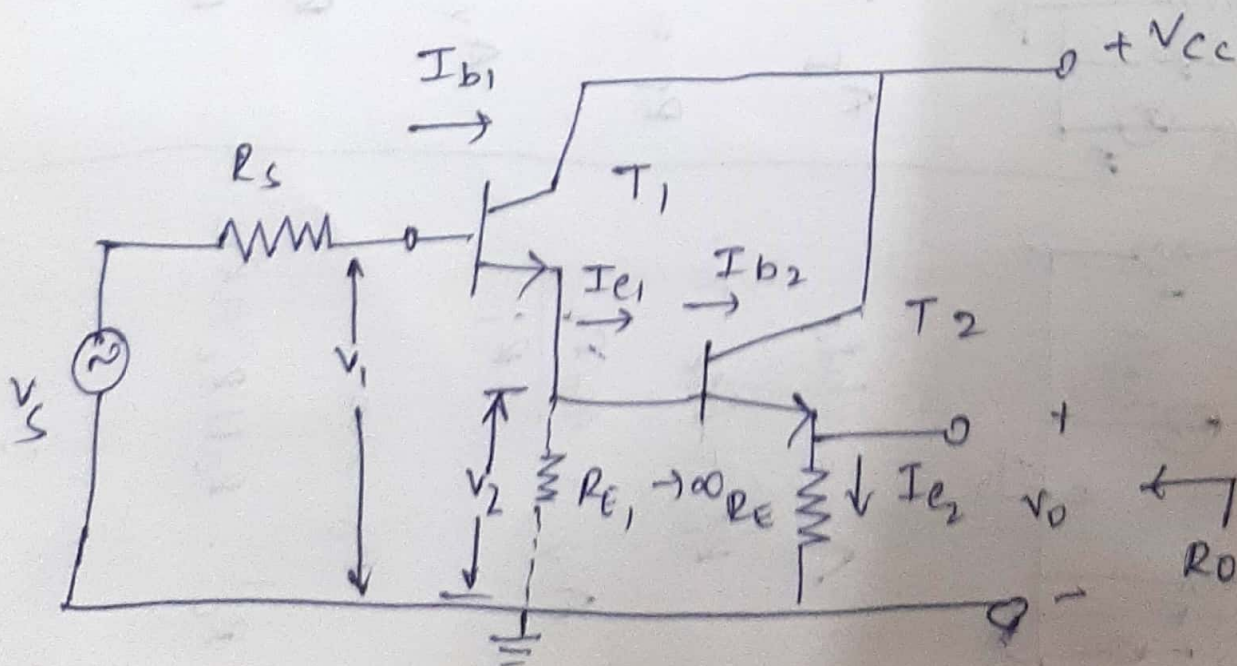 Ib1
+ VCC
RS
T1
Ie1
Ib2
T2
V1
VS
V2
RE1 →∞
RE
Ie2
+
V0
-
R0